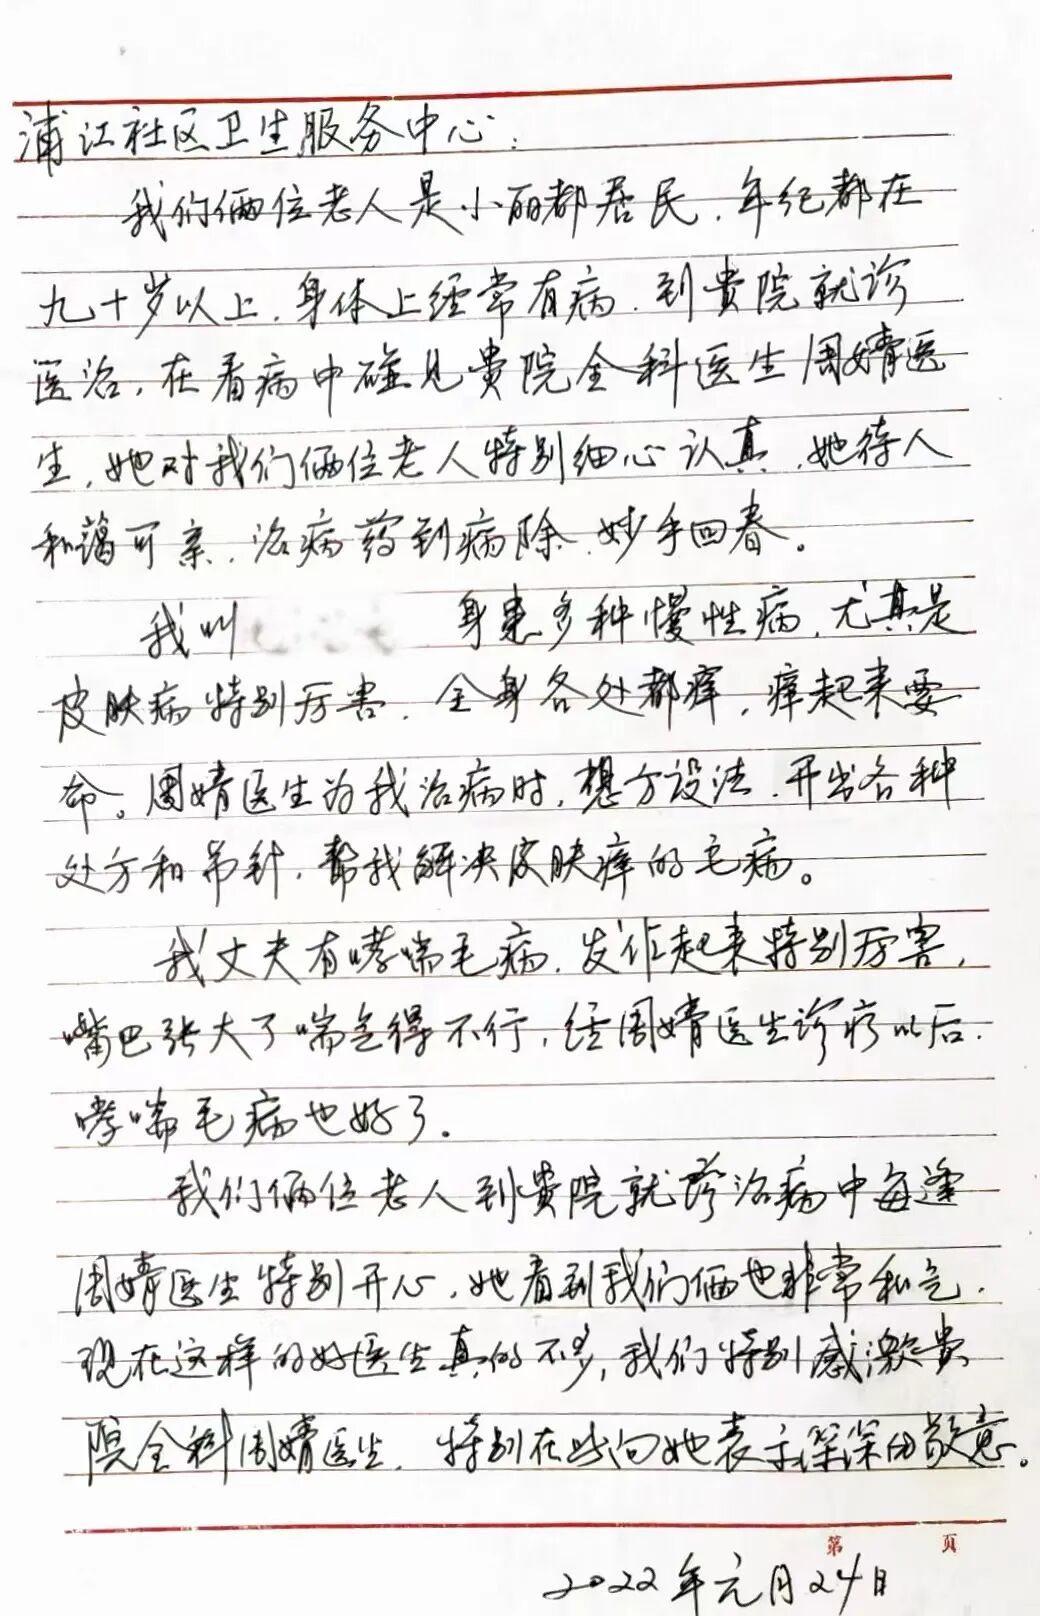 浦江社区卫生服务中心：
我们俩位老人是小丽都居民，年纪都在
九十岁以上，身体上经常有病，到貴院就诊
医治，在看病中碰见貴院全科医生周婧医
生，她对我们俩位老人特别细心认真，她待人
和蔼可亲，治病药到病除，妙手回春。
我叫 身患多种慢性病，尤其是
皮肤病特别厉害，全身各处都痒，痒起来要
命。周婧医生为我治病时，想方设法，开出各种
处方和吊针，帮我解决皮肤痒的毛病。
我丈夫有哮喘毛病，发作起来特别厉害，
嘴巴张大了喘气得不行，经周婧医生诊疗以后，
哮喘毛病也好了。
我们俩位老人到貴院就诊治病中每逢
周婧医生特别开心，她看到我们俩也非常和气，
现在这样的好医生真的不多，我们特别感激貴
院全科周婧医生，特别在此向她表示深深的敬意。
第 页
2022年元月24日